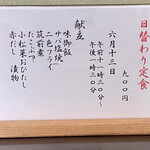 日替わり定食
九〇〇円
六月十三日
午前十一時三〇分～
午後一時三〇分
献立
味御飯
サバ塩焼
二色フライ
筑前煮
たこぶつ
小松菜おひたし
赤だし 漬物